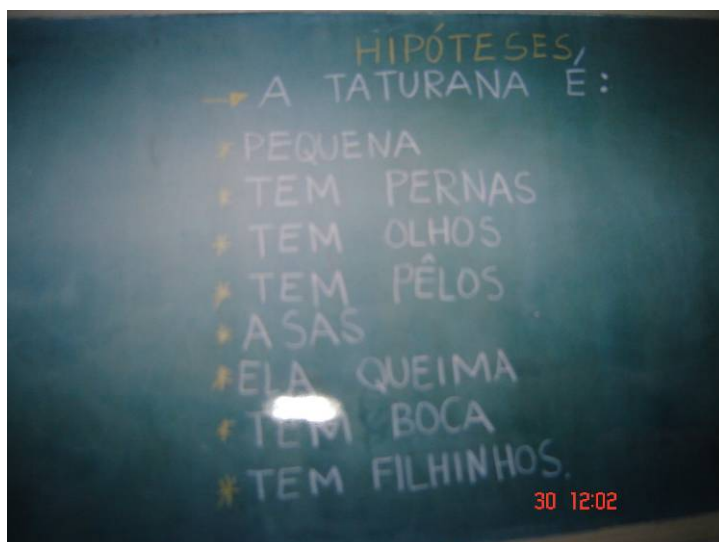 HIPÓTESES
→ A TATURANA É:
* PEQUENA
* TEM PERNAS
* TEM OLHOS
* TEM PÊLOS
* ASAS
* ELA QUEIMA
* TEM BOCA
* TEM FILHINHOS.
30 12:02